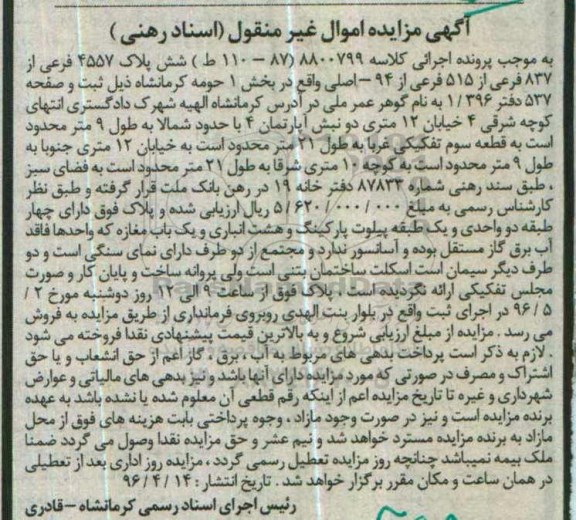 آگهی مزایده اموال غیر منقول (اسناد رهنی )
به موجب پرونده اجرائی کلاسه ۸۸۰۰۷۹۹ (۸۷ – ۱۱۰ ط ) شش پلاک ۴۵۵۷ فرعی از
۸۳۷ فرعی از ۵۱۵ فرعی از ۹۴ –اصلی واقع در بخش ۱ حومه کرمانشاه ذیل ثبت و صفحه
۵۳۷ دفتر ۱/۳۹۶ به نام گوهر عمر ملی در آدرس کرمانشاه الهیه شهرک دادگستری انتهای
کوچه شرقی ۴ خیابان ۱۲ متری دو نبش آپارتمان ۴ با حدود شمالا به طول ۹ متر محدود
است به قطعه سوم تفکیکی غربا به طول ۲۱ متر محدود است به خیابان ۱۲ متری جنوبا به
طول ۹ متر محدود است به کوچه ۱۰ متری شرقا به طول ۲۱ متر محدود است به فضای سبز
، طبق سند رهنی شماره ۸۷۸۳۳ دفتر خانه ۱۹ در رهن بانک ملت قرار گرفته و طبق نظر
کارشناس رسمی به مبلغ ۵/۶۲۰/۰۰۰/۰۰۰ ریال ارزیابی شده و پلاک فوق دارای چهار
طبقه دو واحدی و یک طبقه پیلوت پارکینگ و هشت انباری و یک باب مغازه که واحدها فاقد
آب برق گاز مستقل بوده و آسانسور ندارد و مجتمع از دو طرف دارای نمای سنگی است و دو
طرف دیگر سیمان است اسکلت ساختمان بتنی است ولی پروانه ساخت و پایان کار و صورت
مجلس تفکیکی ارائه نگردیده است ، پلاک فوق از ساعت ۹ الی ۱۲ روز دوشنبه مورخ ۲ /
۹۶/۵ در اجرای ثبت واقع در بلوار بنت الهدی روبروی فرمانداری از طریق مزایده به فروش
می رسد . مزایده از مبلغ ارزیابی شروع و به بالاترین قیمت پیشنهادی نقدا فروخته می شود
. لازم به ذکر است پرداخت بدهی های مربوط به آب ، برق ، گاز اعم از حق انشعاب و یا حق
اشتراک و مصرف در صورتی که مورد مزایده دارای آنها باشد و نیز بدهی های مالیاتی و عوارض
شهرداری و غیره تا تاریخ مزایده اعم از اینکه رقم قطعی آن معلوم شده یا نشده باشد به عهده
برنده مزایده است و نیز در صورت وجود مازاد ، وجوه پرداختی بابت هزینه های فوق از محل
مازاد به برنده مزایده مسترد خواهد شد و نیم عشر و حق مزایده نقدا وصول می گردد ضمنا
ملک بیمه نمیباشد چنانچه روز مزایده تعطیل رسمی گردد ، مزایده روز اداری بعد از تعطیلی
در همان ساعت و مکان مقرر برگزار خواهد شد . تاریخ انتشار : ۱۴ / ۴ / ۹۶
رئیس اجرای اسناد رسمی کرمانشاه –قادری